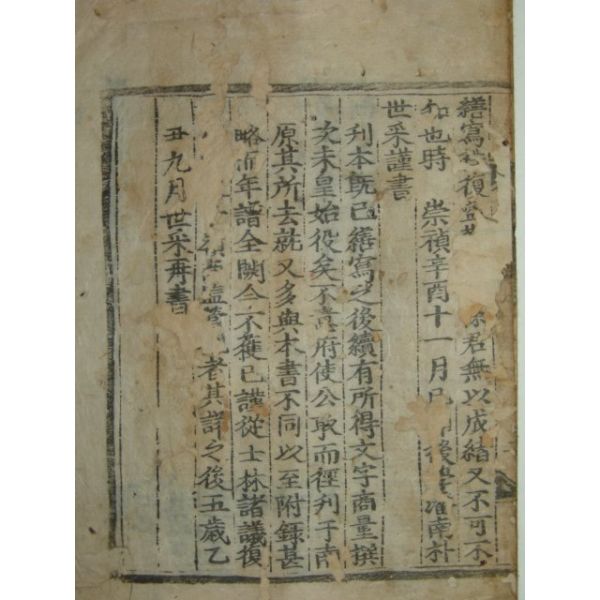 繕寫 復 君無以成緒又不可不
知也時 崇禎辛酉十一月 後學 南朴
世采謹書
刊本旣已繕寫之後續有所得文字商量撰
次未皇始役矣不 府使公敢而徑刊于南
原其所去就又多與本書不同以至附錄甚
略而年譜全闕今不獲已謹從士林諸議復
考其詳之後五歲乙
丑九月世采再書